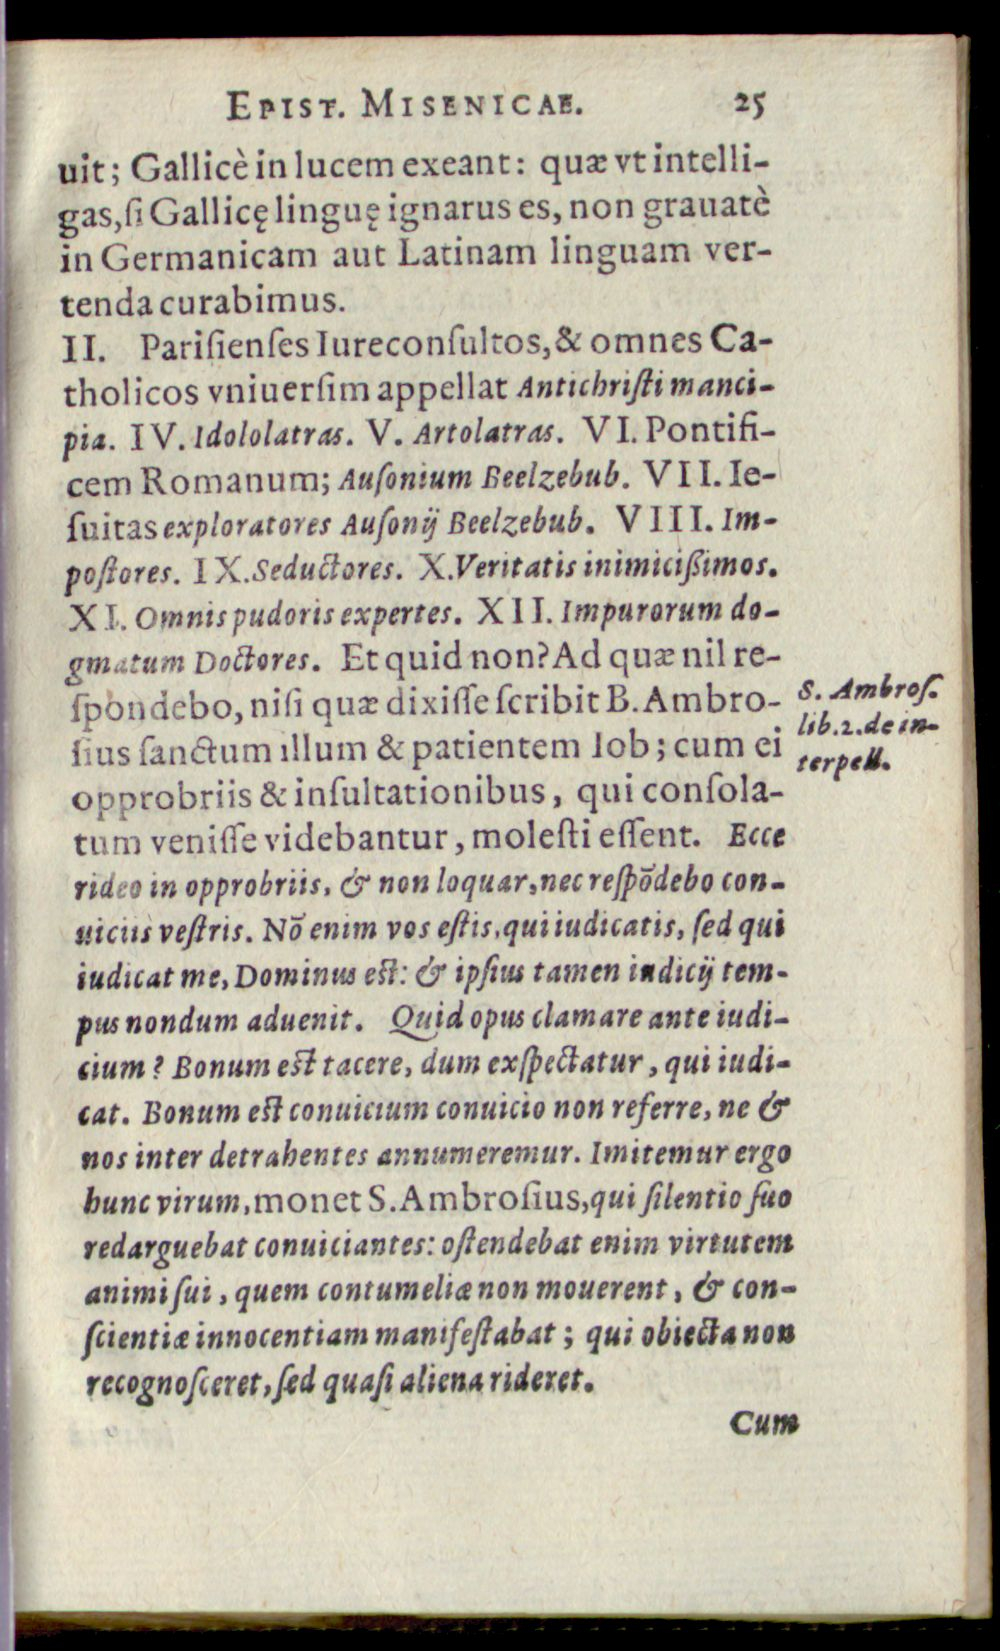 EPIST. MISENICAE. 25
uit; Gallicè in lucem exeant: quæ vt intelli-
gas, ſi Gallicę linguę ignarus es, non grauatè
in Germanicam aut Latinam linguam ver-
tenda curabimus.
II. Pariſienſes Iureconſultos, & omnes Ca-
tholicos vniuerſim appellat Antichriſti manci-
pia. IV. Idololatras. V. Artolatras. VI. Pontifi-
cem Romanum; Auſonium Beelzebub. VII. Ie-
ſuitas exploratores Auſonij Beelzebub. VIII. Im-
poſtores. IX. Seductores. X. Veritatis inimicißimos.
XI. Omnis pudoris expertes. XII. Impurorum do-
gmatum Doctores. Et quid non? Ad quæ nil re-
ſpondebo, niſi quæ dixiſſe ſcribit B. Ambro-
ſius ſanctum illum & patientem Iob; cum ei
opprobriis & inſultationibus, qui conſola-
tum veniſſe videbantur, moleſti eſſent. Ecce
rideo in opprobriis, & non loquar, nec reſpōdebo con-
uiciis veſtris. Nō enim vos eſtis, qui iudicatis, ſed qui
iudicat me, Dominus eſt: & ipſius tamen iudicij tem-
pus nondum aduenit. Quid opus clamare ante iudi-
cium? Bonum eſt tacere, dum exſpectatur, qui iudi-
cat. Bonum eſt conuicium conuicio non referre, ne &
nos inter detrahentes annumeremur. Imitemur ergo
hunc virum, monet S. Ambroſius, qui ſilentio ſuo
redarguebat conuiciantes: oſtendebat enim virtutem
animi ſui, quem contumeliæ non mouerent, & con-
ſcientiæ innocentiam manifeſtabat; qui obiecta non
recognoſceret, ſed quaſi aliena rideret.
Cum
S. Ambroſ.
lib. 2. de in-
terpell.